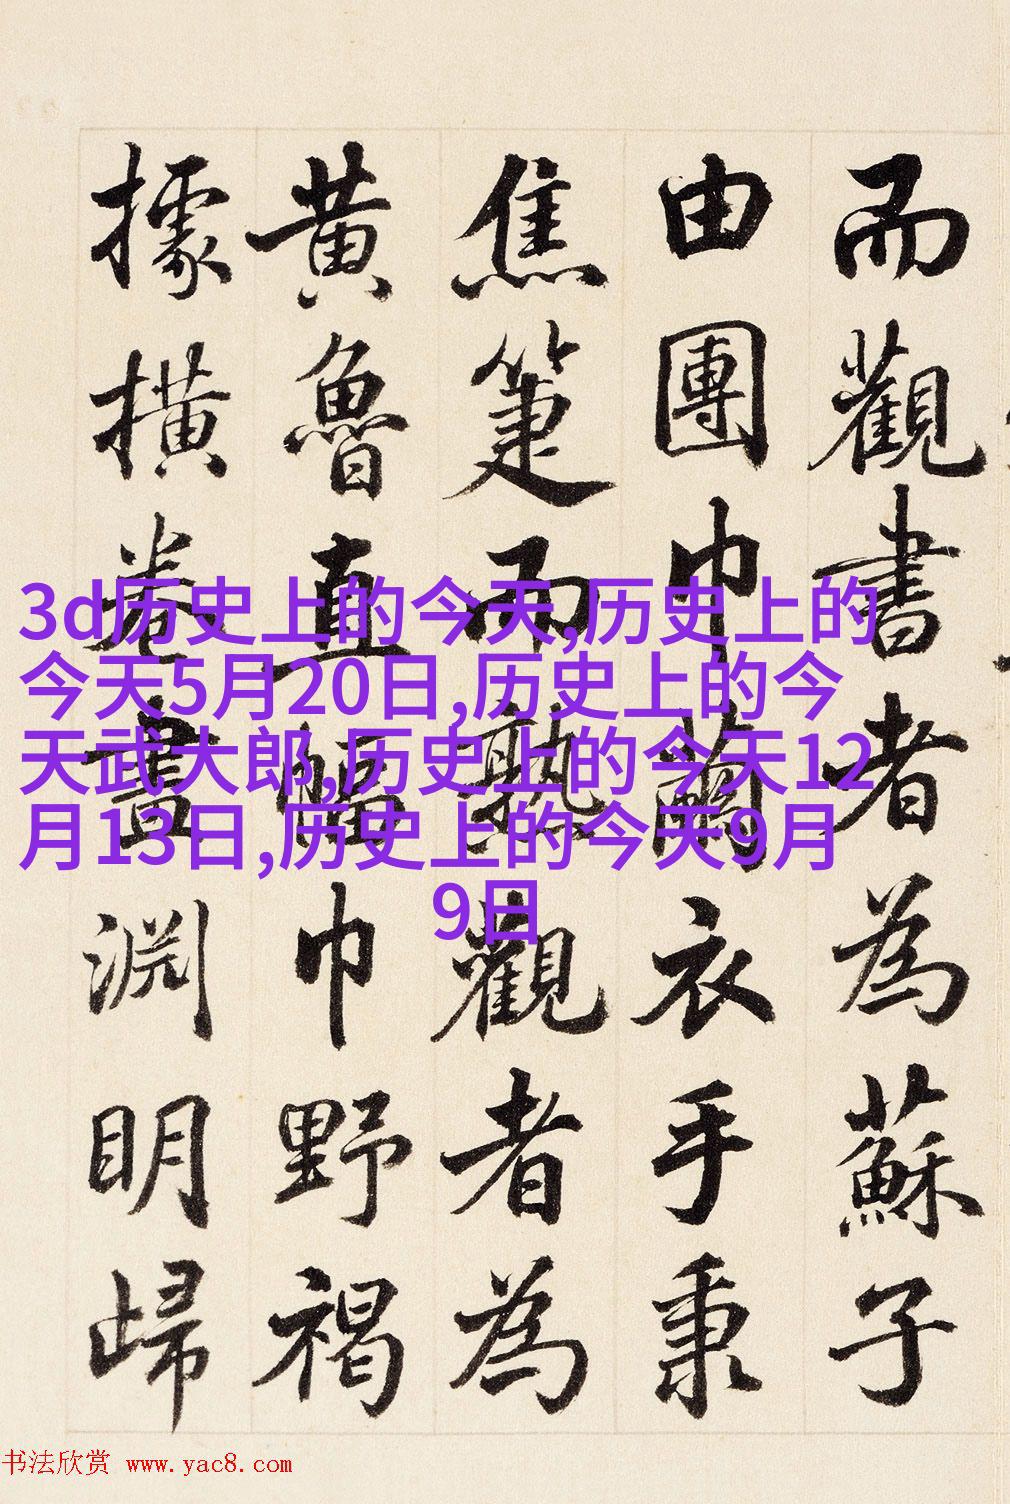 而觀書者為蘇子
由團巾繭衣手秉
焦箑而熟觀者為
黃魯直幅巾野褐
據撗卷畫淵明歸
3d历史上的今天,历史上的
今天5月20日,历史上的今
天武大郎,历史上的今天12
月13日,历史上的今天9月
9日
书法欣赏 www.yac8.com